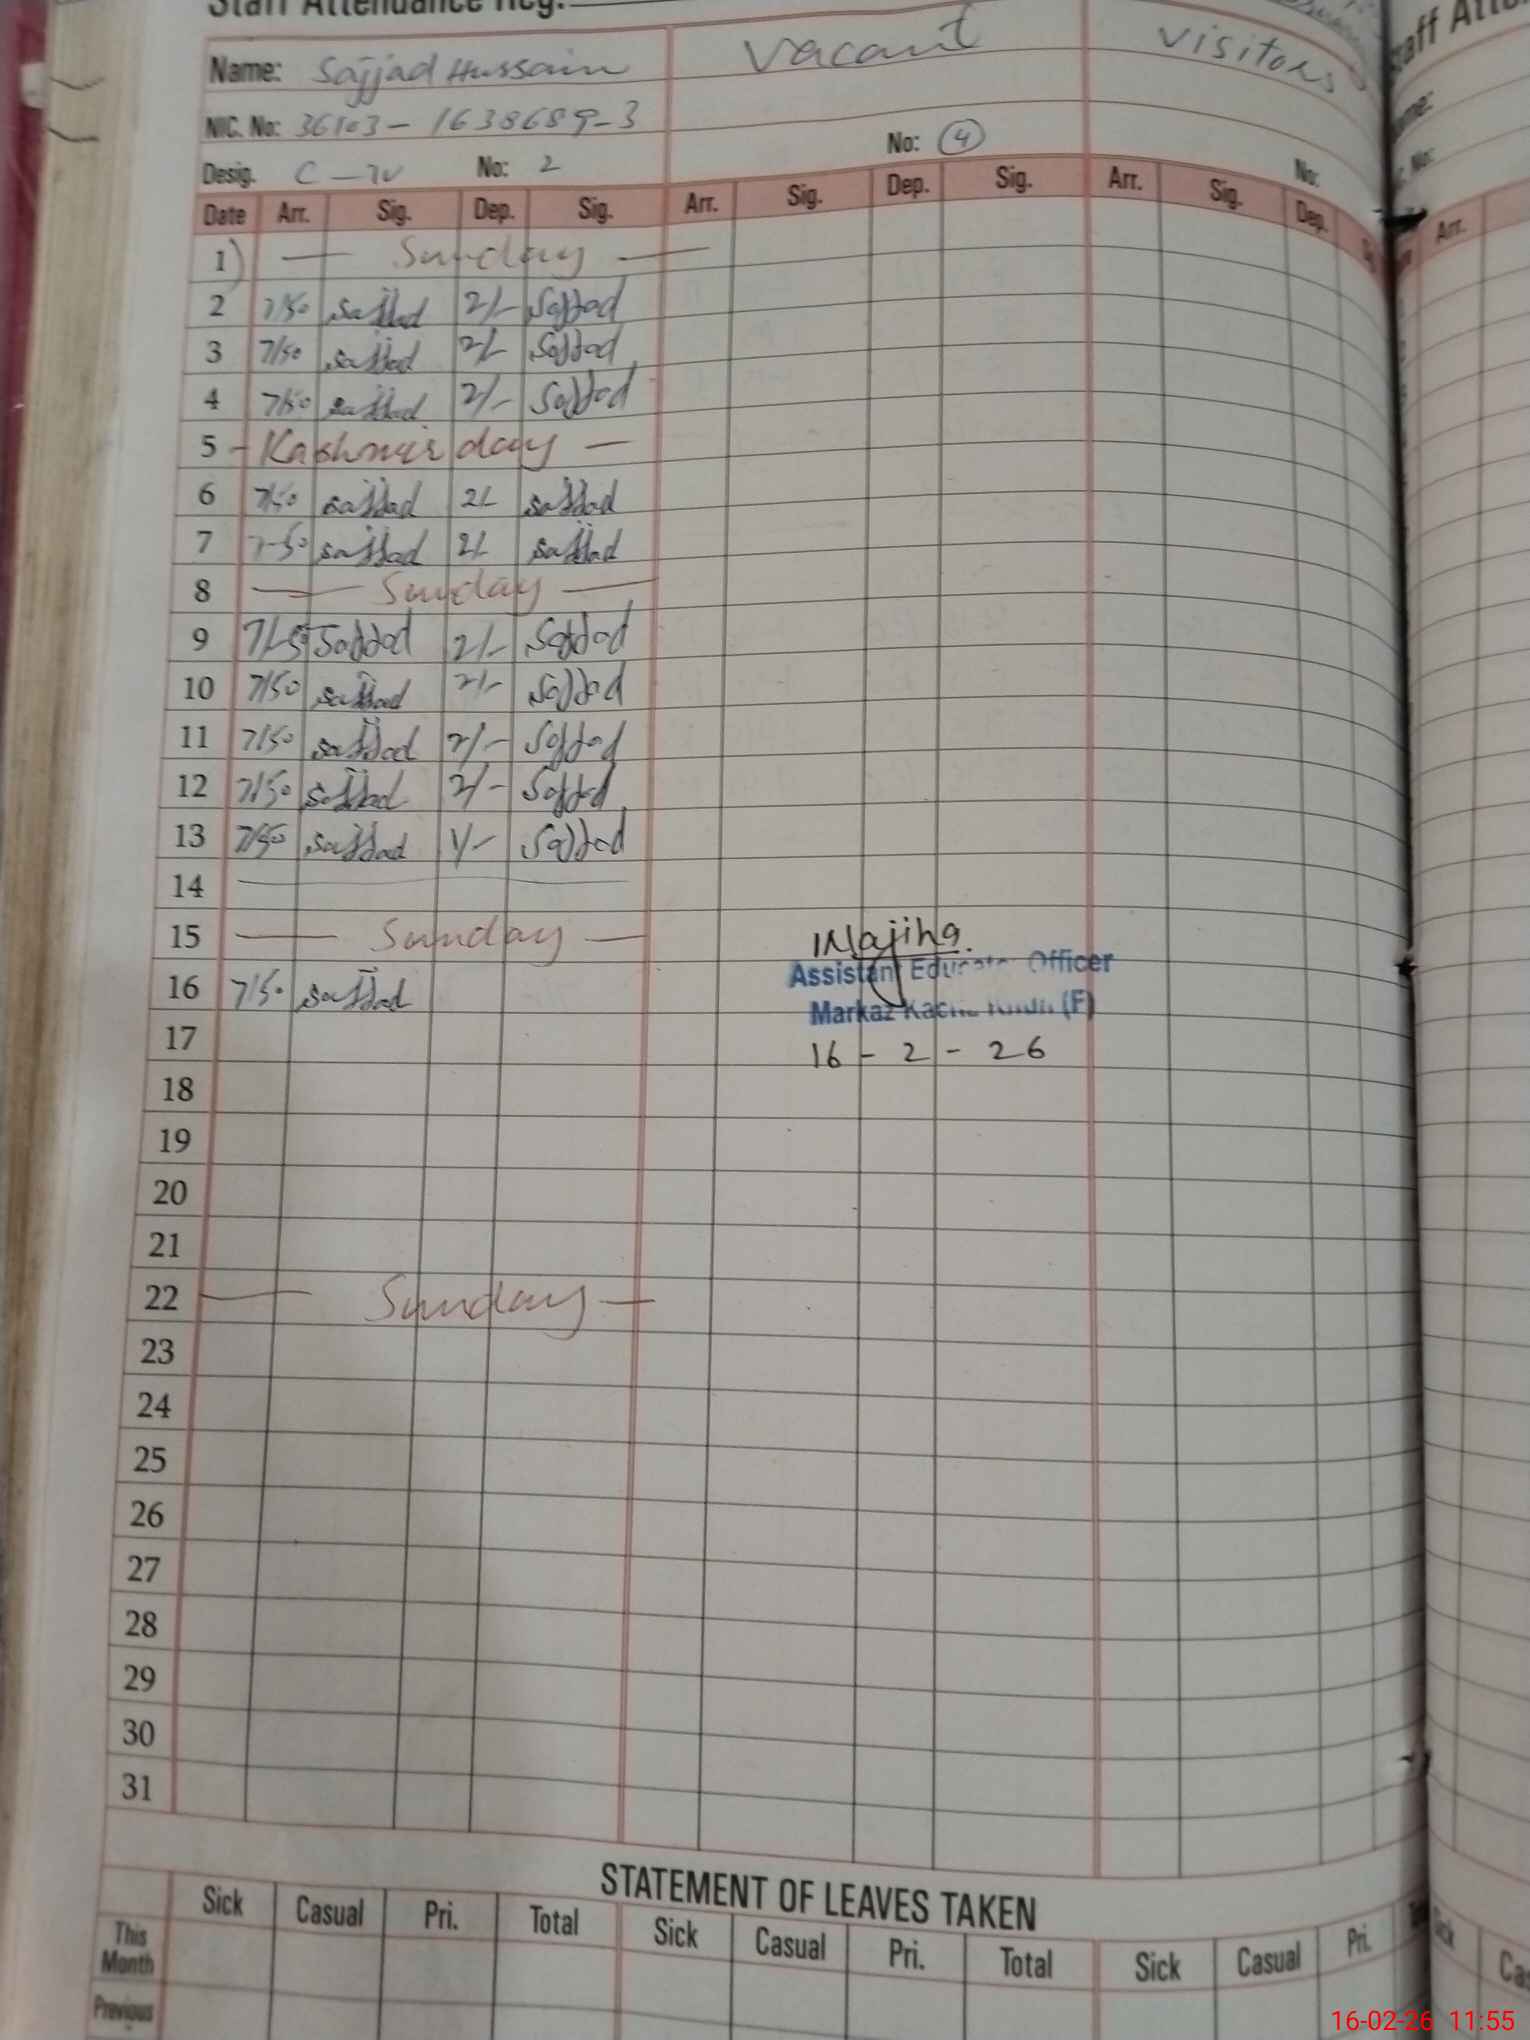 Staff Attendance Reg.
Name: Sajjad Hussain Vacant Visitors
NIC. No: 36103-1638689-3
Desig. C-IV No: 2 No: 4 No:
Date Arr. Sig. Dep. Sig. Arr. Sig. Dep. Sig. Arr. Sig. Dep.
1) — Sunday —
2 7/50 Sajjad 2/- Sajjad
3 7/50 Sajjad 2/- Sajjad
4 7/50 Sajjad 2/- Sajjad
5 - Kashmir day -
6 7/50 Sajjad 2/- Sajjad
7 7-50 Sajjad 2/- Sajjad
8 — Sunday —
9 Sajjad 2/- Sajjad
10 7/50 Sajjad 2/- Sajjad
11 7/50 Sajjad 2/- Sajjad
12 7/50 Sajjad 2/- Sajjad
13 7/50 Sajjad 1/- Sajjad
14 —
15 — Sunday —
16 7/50 Sajjad
Assistant Officer
Markaz (F)
16-2-26
17
18
19
20
21
22 — Sunday —
23
24
25
26
27
28
29
30
31
STATEMENT OF LEAVES TAKEN
Sick Casual Pri. Total Sick Casual Pri. Total Sick Casual Pri.
This Month
Previous
Staff
Arr.
Sick
16-02-26 11:55